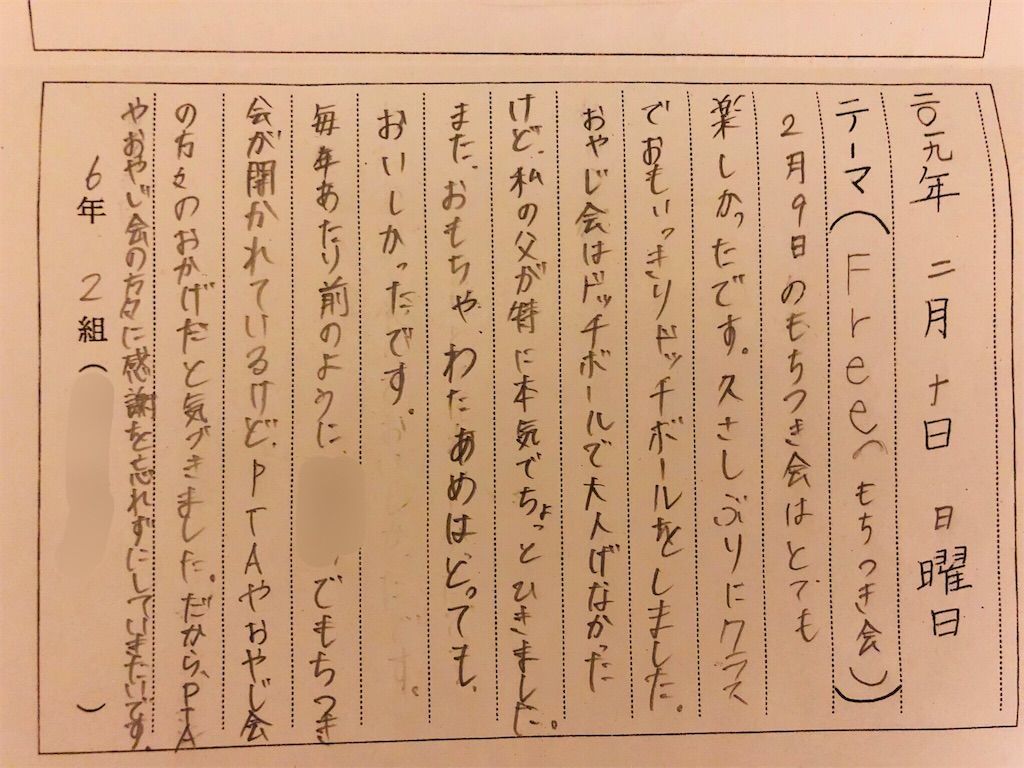 二〇一九年 二月 十日 日曜日
テーマ(Free〜もちつき会)
2月9日のもちつき会はとても
楽しかったです。久さしぶりにクラス
でおもいっきりドッチボールをしました。
おやじ会はドッチボールで大人げなかった
けど、私の父が特に本気でちょっとひきました。
また、おもちゃ、わたあめはとっても、
おいしかったです。
毎年あたり前のように、でもちつき
会が開かれているけど、PTAやおやじ会
の方々のおかげだと気づきました。だから、PTA
やおやじ会の方々に感謝を忘れずにしていきたいです。
6年 2組( )